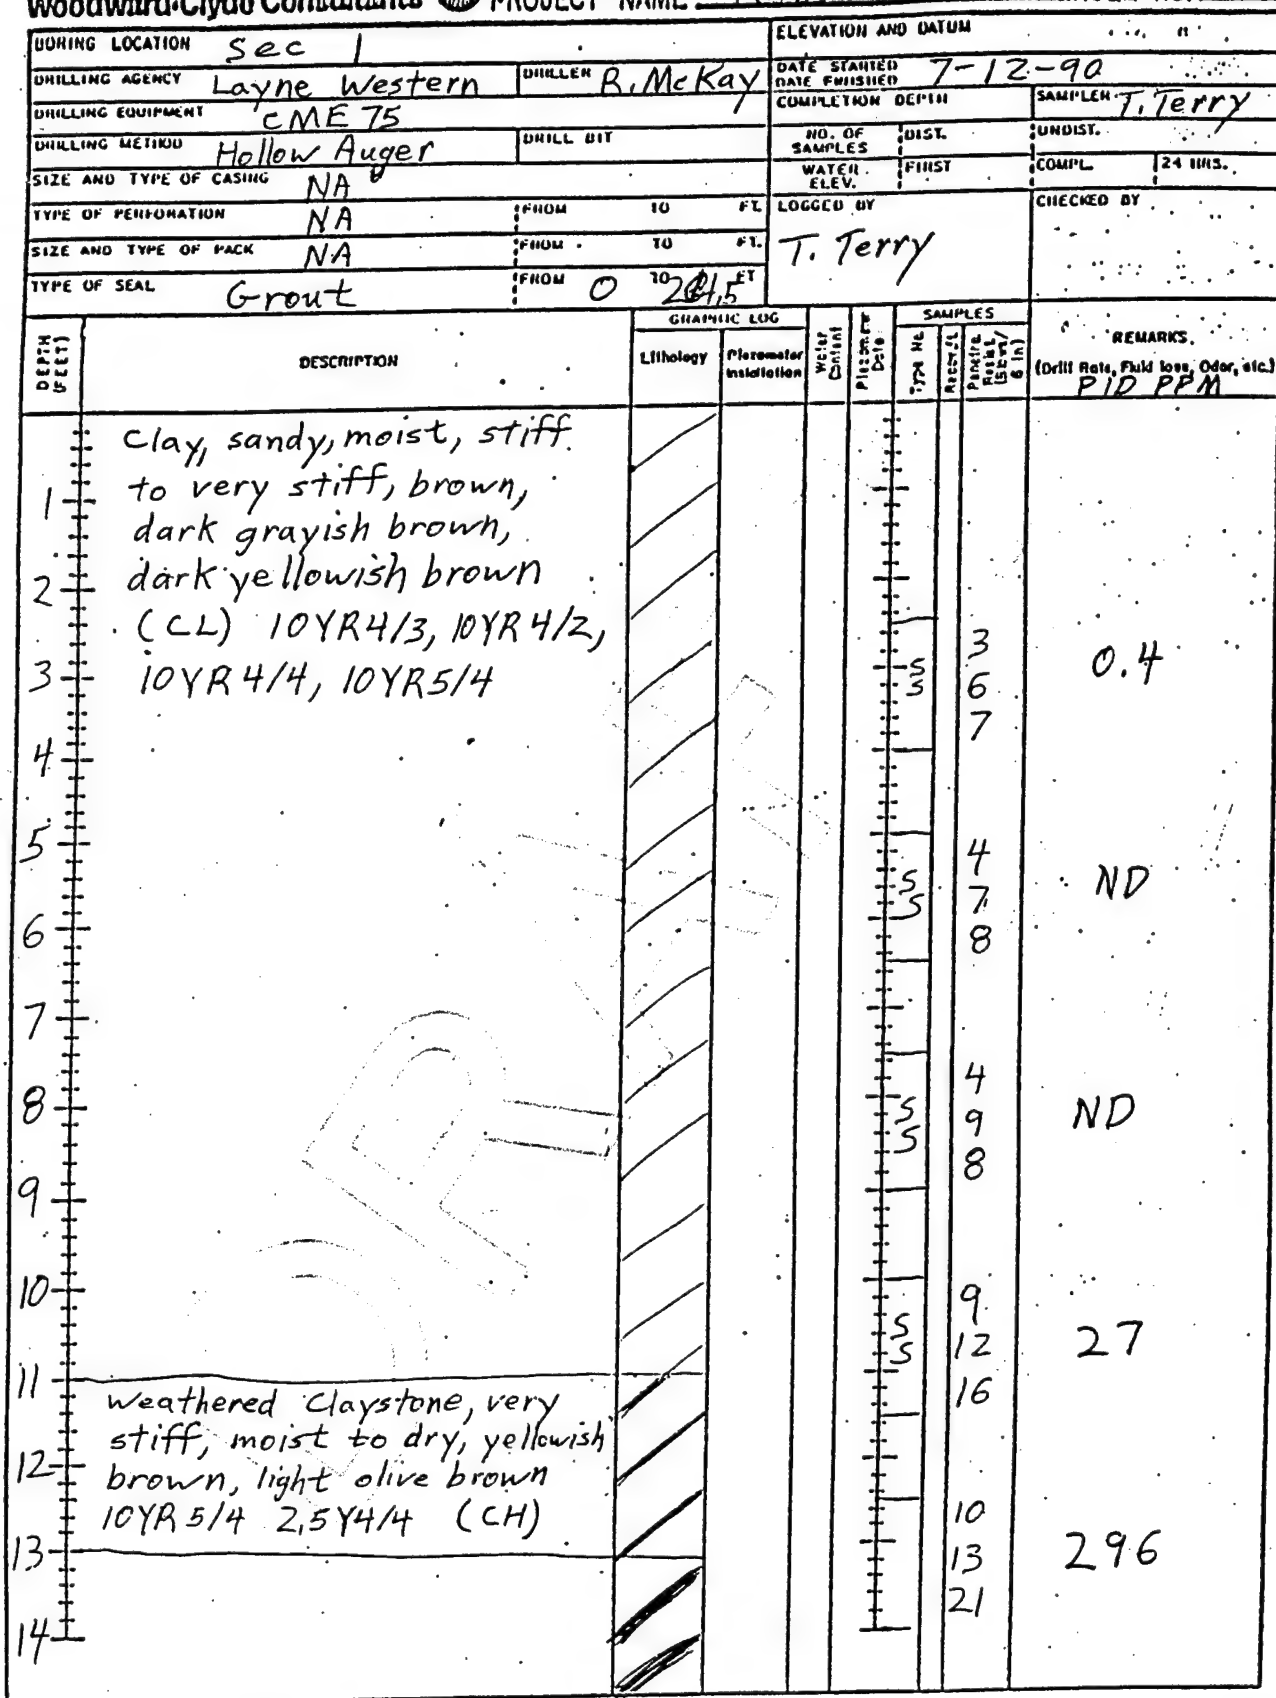 Woodward-Clyde Consultants PROJECT NAME
BORING LOCATION Sec 1
ELEVATION AND DATUM
DRILLING AGENCY Layne Western
DRILLER R. McKay
DATE STARTED
DATE FINISHED
7-12-90
DRILLING EQUIPMENT CME 75
COMPLETION DEPTH
SAMPLER T. Terry
DRILLING METHOD Hollow Auger
DRILL BIT
NO. OF SAMPLES
DIST.
UNDIST.
SIZE AND TYPE OF CASING NA
WATER ELEV.
FIRST
COMPL.
24 HRS.
TYPE OF PERFORATION NA
FROM TO FT.
LOGGED BY
T. Terry
CHECKED BY
SIZE AND TYPE OF PACK NA
FROM TO FT.
TYPE OF SEAL Grout
FROM 0 TO FT
DEPTH (FEET)
DESCRIPTION
GRAPHIC LOG
Lithology
Piezometer Installation
Water Content
Piezometer Data
SAMPLES
Type No.
Penetra. Resist. (Blows/ 6 in)
REMARKS
(Drill Rate, Fluid loss, Odor, etc.)
PID PPM
Clay, sandy, moist, stiff
to very stiff, brown,
dark grayish brown,
dark yellowish brown
(CL) 10YR4/3, 10YR4/2,
10YR4/4, 10YR5/4
1
2
3
4
5
6
7
8
9
10
11
12
13
14
SS
3
6
7
0.4
SS
4
7
8
ND
SS
4
9
8
ND
SS
9
12
16
27
Weathered Claystone, very
stiff, moist to dry, yellowish
brown, light olive brown
10YR5/4 2.5Y4/4 (CH)
10
13
21
296